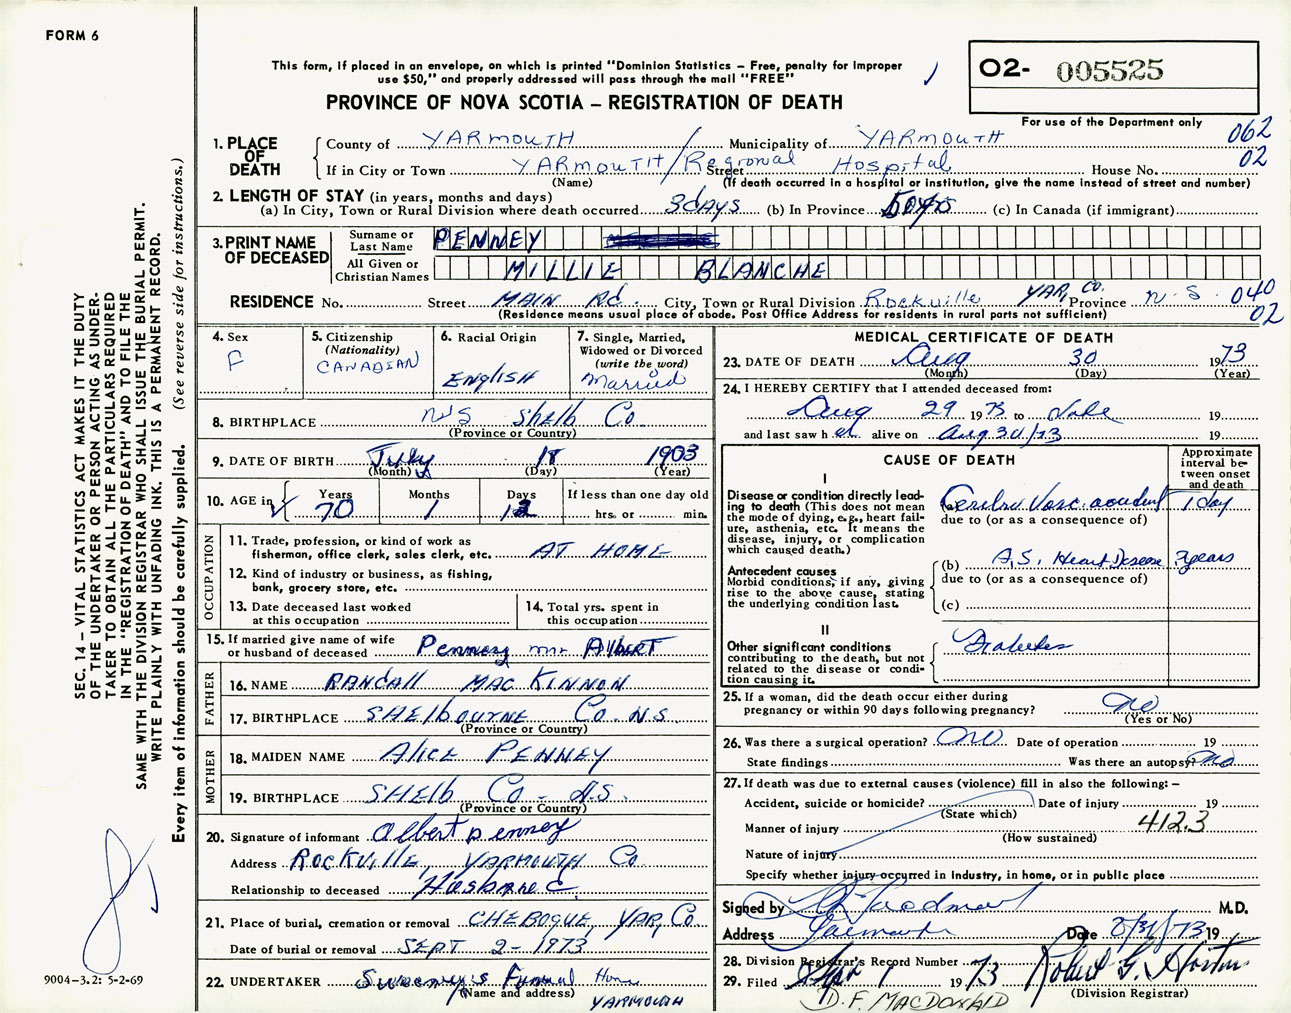 FORM 6
This form, if placed in an envelope, on which is printed "Dominion Statistics – Free, penalty for improper
use $50," and properly addressed will pass through the mail "FREE"
PROVINCE OF NOVA SCOTIA – REGISTRATION OF DEATH
02- 005525
For use of the Department only
062
02
1. PLACE OF DEATH
County of YARMOUTH Municipality of YARMOUTH
If in City or Town YARMOUTH / Regional Hospital Street House No.
(Name) (If death occurred in a hospital or institution, give the name instead of street and number)
2. LENGTH OF STAY (in years, months and days)
(a) In City, Town or Rural Division where death occurred 3 days (b) In Province (c) In Canada (if immigrant)
3. PRINT NAME OF DECEASED
Surname or Last Name PENNEY
All Given or Christian Names MILLIE BLANCHE
RESIDENCE No. Street MAIN Rd. City, Town or Rural Division Rockville YAR, Co. Province N.S. 040
(Residence means usual place of abode. Post Office Address for residents in rural parts not sufficient) 02
4. Sex
F
5. Citizenship
(Nationality)
CANADIAN
6. Racial Origin
ENGLISH
7. Single, Married,
Widowed or Divorced
(write the word)
Married
8. BIRTHPLACE NS Shelb Co
(Province or Country)
9. DATE OF BIRTH July 18 1903
(Month) (Day) (Year)
10. AGE in Years 70 Months 1 Days 12 If less than one day old
hrs. or min.
OCCUPATION
11. Trade, profession, or kind of work as
fisherman, office clerk, sales clerk, etc. AT HOME
12. Kind of industry or business, as fishing,
bank, grocery store, etc.
13. Date deceased last worked
at this occupation
14. Total yrs. spent in
this occupation
15. If married give name of wife
or husband of deceased Penney Mr. Albert
FATHER
16. NAME RANDALL MAC KINNON
17. BIRTHPLACE SHElbOURNE Co. N.S.
(Province or Country)
MOTHER
18. MAIDEN NAME ALICE PENNEY
19. BIRTHPLACE SHElb Co - N.S.
(Province or Country)
20. Signature of informant Albert Penney
Address ROCKVILLE, YARMOUTH Co
Relationship to deceased Husband
21. Place of burial, cremation or removal CHEBOGUE, YAR, Co.
Date of burial or removal SEPT 2 - 1973
22. UNDERTAKER Sweeny's Funeral Home
(Name and address) YARMOUTH
MEDICAL CERTIFICATE OF DEATH
23. DATE OF DEATH Aug 30 1973
(Month) (Day) (Year)
24. I HEREBY CERTIFY that I attended deceased from:
Aug 29 1973 to date 19
and last saw her alive on Aug 30/73 19
CAUSE OF DEATH
Approximate
interval be-
tween onset
and death
I
Disease or condition directly lead-
ing to death (This does not mean
the mode of dying, e.g., heart fail-
ure, asthenia, etc. It means the
disease, injury, or complication
which caused death.)
(a) Cerebro Vasc. accident 1 day
due to (or as a consequence of)
Antecedent causes
Morbid conditions, if any, giving
rise to the above cause, stating
the underlying condition last.
(b) A.S. Heart Disease years
due to (or as a consequence of)
(c)
II
Other significant conditions
contributing to the death, but not
related to the disease or condi-
tion causing it.
Diabetes
25. If a woman, did the death occur either during
pregnancy or within 90 days following pregnancy? no
(Yes or No)
26. Was there a surgical operation? no Date of operation 19
State findings Was there an autopsy? no
27. If death was due to external causes (violence) fill in also the following: –
Accident, suicide or homicide? Date of injury 19
(State which)
Manner of injury 412.3
(How sustained)
Nature of injury
Specify whether injury occurred in industry, in home, or in public place
Signed by M.D.
Address Yarmouth Date 8/31/73 19
28. Division Registrar's Record Number
29. Filed 1 1973 Robert G. Horton
(Division Registrar)
D. F. MACDONALD
SEC. 14 – VITAL STATISTICS ACT MAKES IT THE DUTY
OF THE UNDERTAKER OR PERSON ACTING AS UNDER-
TAKER TO OBTAIN ALL THE PARTICULARS REQUIRED
IN THE "REGISTRATION OF DEATH" AND TO FILE THE
SAME WITH THE DIVISION REGISTRAR WHO SHALL ISSUE THE BURIAL PERMIT.
WRITE PLAINLY WITH UNFADING INK. THIS IS A PERMANENT RECORD.
Every item of information should be carefully supplied. (See reverse side for instructions.)
9004-3.2: 5-2-69